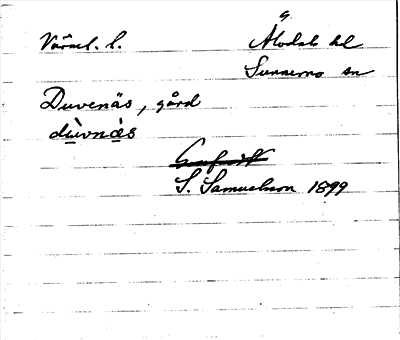 Värml. l.
G.
Älvdals hd
Sunnemo sn
Duvenäs, gård
dùvnä̀s
S. Samuelson 1899